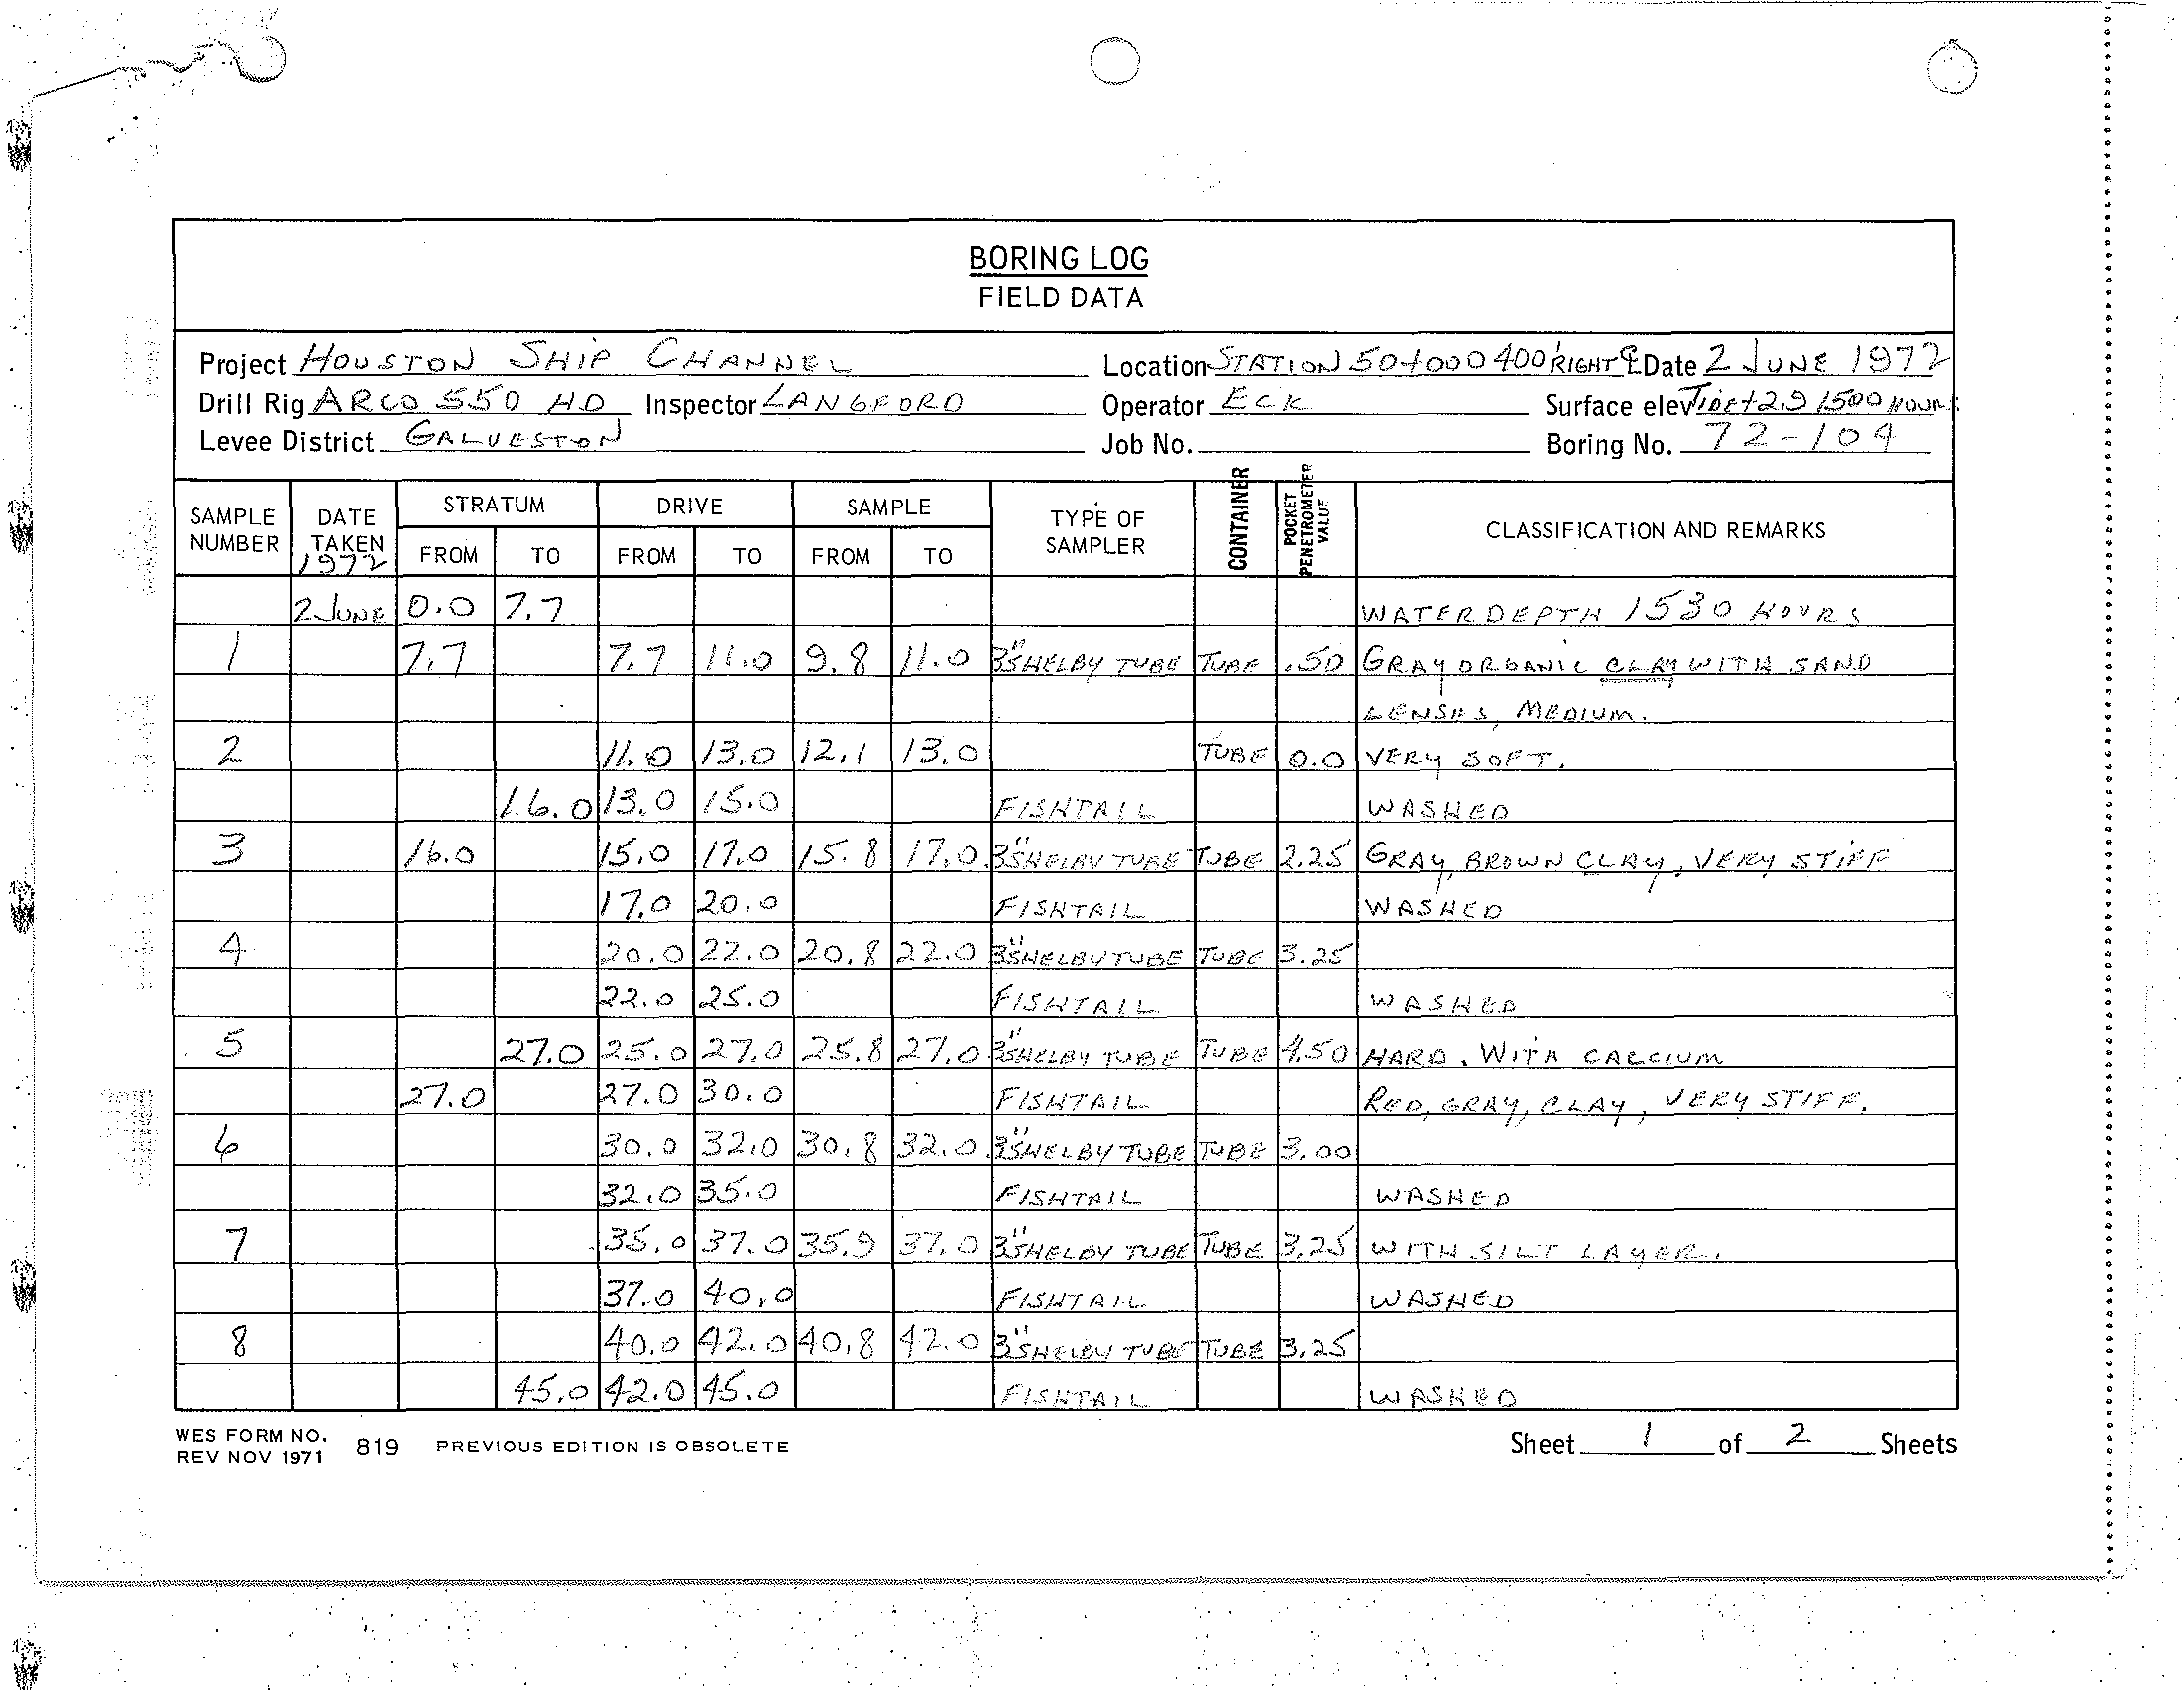 BORING LOG
FIELD DATA
Project HOUSTON SHIP CHANNEL Location STATION 50+000 400' RIGHT ℄ Date 2 JUNE 1972
Drill Rig ARCO 550 HD Inspector LANGFORD Operator ECK Surface elev TIDE +2.9 1500 HOUR
Levee District GALVESTON Job No. Boring No. 72-104
SAMPLE NUMBER DATE TAKEN 1972 STRATUM DRIVE SAMPLE TYPE OF SAMPLER CONTAINER POCKET PENETROMETER VALUE CLASSIFICATION AND REMARKS
FROM TO FROM TO FROM TO
2 JUNE 0.0 7.7 WATER DEPTH 1530 HOURS
1 7.7 7.7 11.0 9.8 11.0 3" SHELBY TUBE TUBE .50 GRAY ORGANIC CLAY WITH SAND
LENSES, MEDIUM.
2 11.0 13.0 12.1 13.0 TUBE 0.0 VERY SOFT.
16.0 13.0 15.0 FISHTAIL WASHED
3 16.0 15.0 17.0 15.8 17.0 3" SHELBY TUBE TUBE 2.25 GRAY, BROWN CLAY, VERY STIFF
17.0 20.0 FISHTAIL WASHED
4 20.0 22.0 20.8 22.0 3" SHELBY TUBE TUBE 3.25
22.0 25.0 FISHTAIL WASHED
5 27.0 25.0 27.0 25.8 27.0 3" SHELBY TUBE TUBE 4.50 HARD. WITH CALCIUM
27.0 27.0 30.0 FISHTAIL RED, GRAY, CLAY, VERY STIFF.
6 30.0 32.0 30.8 32.0 3" SHELBY TUBE TUBE 3.00
32.0 35.0 FISHTAIL WASHED
7 35.0 37.0 35.9 37.0 3" SHELBY TUBE TUBE 3.25 WITH SILT LAYER.
37.0 40.0 FISHTAIL WASHED
8 40.0 42.0 40.8 42.0 3" SHELBY TUBE TUBE 3.25
45.0 42.0 45.0 FISHTAIL WASHED
WES FORM NO. 819 PREVIOUS EDITION IS OBSOLETE Sheet 1 of 2 Sheets
REV NOV 1971